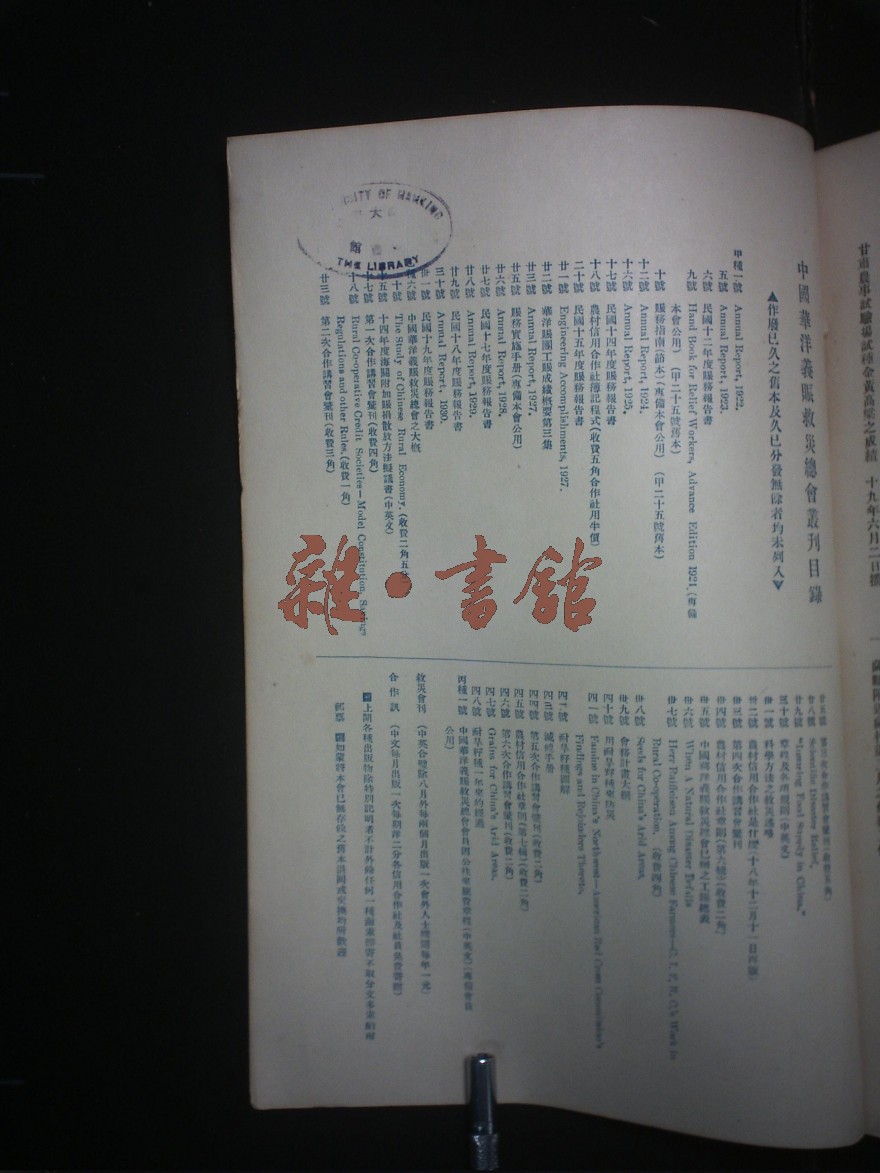 中國華洋義賑救災總會叢刊目錄
▲作廢已久之舊本及久已分發無餘者均未列入▼
甲種一號 Annual Report, 1922.
五號 Annual Report, 1923.
六號 民國十二年度賑務報告書
九號 Hand Book for Relief Workers, Advance Edition 1921. (專備
本會公用) (甲二十五號舊本)
十號 賑務指南(節本)(專備本會公用) (甲二十五號舊本)
十二號 Annual Report, 1924.
十六號 Annual Report, 1925.
十七號 民國十四年度賑務報告書
十八號 農村信用合作社簿記程式(收費五角合作社用半價)
二十號 民國十五年度賑務報告書
廿一號 Engineering Accomplishments, 1927.
廿二號 華洋賑團工賑成績概要第三集
廿三號 Annual Report, 1927.
廿五號 賑務實施手册(專備本會公用)
廿六號 Annual Report, 1928.
廿七號 民國十七年度賑務報告書
廿八號 Annual Report, 1929.
廿九號 民國十八年度賑務報告書
三十號 Annual Report, 1930.
卅一號 民國十九年度賑務報告書
六號 中國華洋義賑救災總會之大概
十號 The Study of Chinese Rural Economy. (收費二角五
五號 十四年度海關附加賑捐散放方法擬議書(中英文)
七號 第一次合作講習會彙刊(收費四角)
八號 Rural Co-operative Credit Societies—Model Constitution, Savings
Regulations and other Rules. (收費一角)
廿三號 第二次合作講習會彙刊(收費三角)
廿五號 第三次合作講習會彙刊(收費五角)
廿八號 Scientific Disaster Relief.
廿九號 "Insuring Food Supply in China."
三十號 章程及各項規則(中英文)
卅一號 科學方法之救災事略
卅二號 農村信用合作社是什麽(十八年十二月十一日再版)
卅三號 第四次合作講習會彙刊
卅四號 農村信用合作社章則(第六號)(收費二角)
卅五號 中國華洋義賑救災總會已辦之工賑總表
卅六號 When A Natural Disaster Befalls
卅七號 Herr Raiffeisen Among Chinese Farmers—C. I. F. R. C.'s Work in
Rural Co-operation. (收費四角)
卅八號 Seeds for China's Arid Areas.
卅九號 會務計畫大綱
四十號 用耐旱籽種來防災
四一號 Famine in China's Northwest—American Red Cross Commission's
Findings and Rejoinders Thereto.
四二號 耐旱籽種圖解
四三號 滅蝗手册
四四號 第五次合作講習會彙刊(收費二角)
四五號 農村信用合作社章則(第七號)(收費二角)
四六號 第六次合作講習會彙刊(收費二角)
四七號 Grains for China's Arid Areas.
四八號 耐旱籽種一年來的經過
丙種一號 中國華洋義賑救災總會會員因公往來川費章程(中英文)(專備會員
公用)
救災會刊 (中英合璧除八月外每兩個月出版一次會外人士購閱每年一元)
合作訊 (中文每月出版一次每期洋二分各信用合作社及社員免費寄贈)
上開各種出版物除特別記明者不計外餘任何一種函索即寄不取分文多索酌附
郵票 如蒙將本會已無存餘之舊本送囘或交換均所歡迎
大
館
THE LIBRARY
雜·書館
甘肅農事試驗場試種金黃高粱之成績 十九年六月二日攝